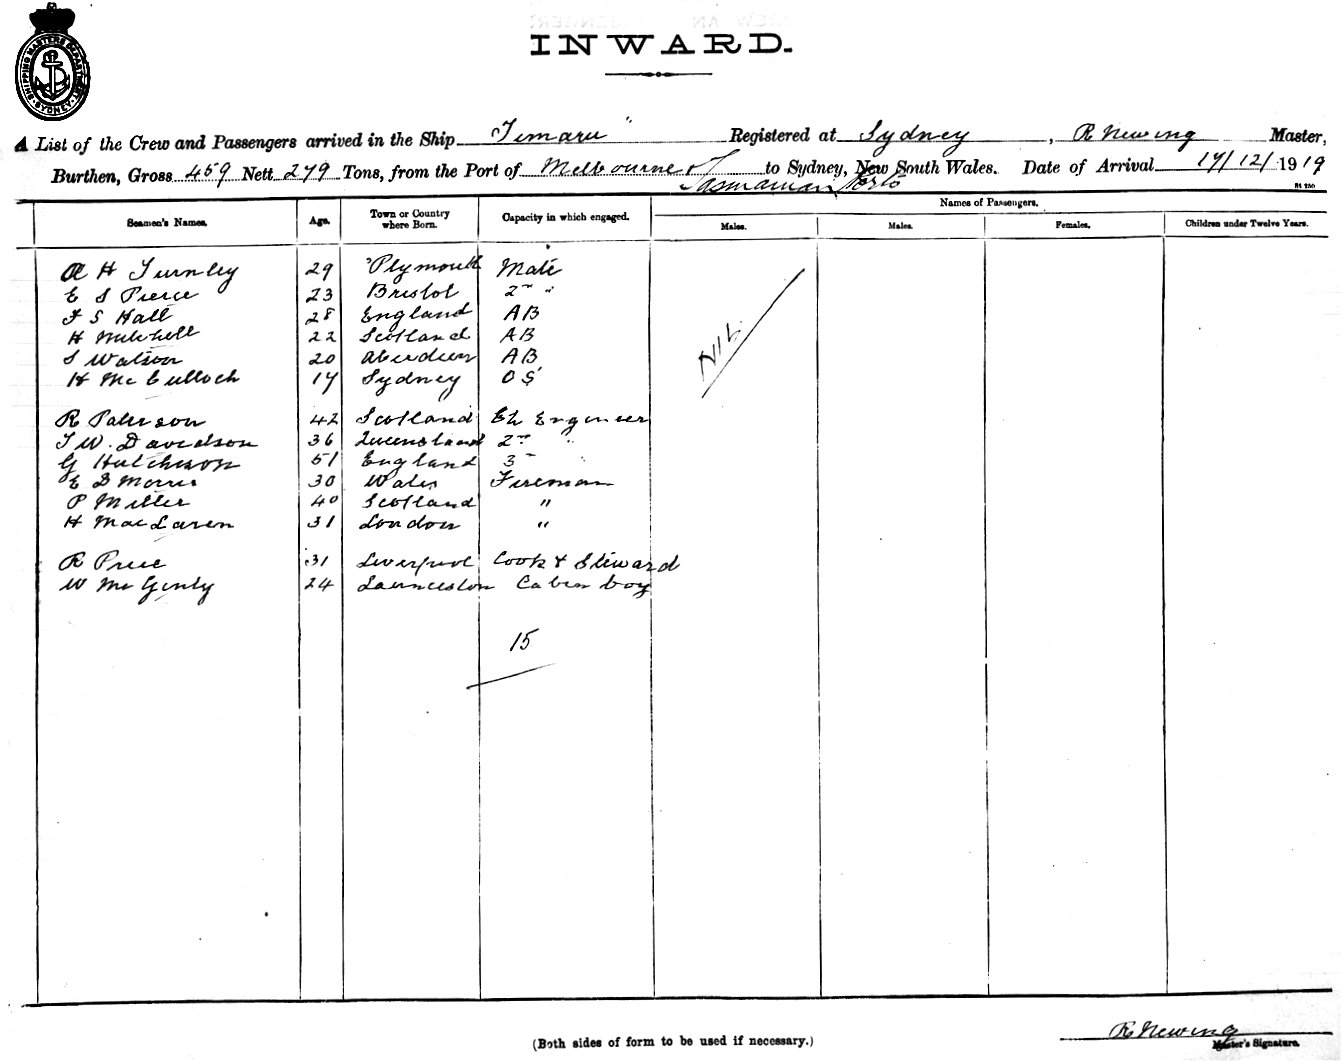 SHIPPING MASTERS DEPARTMENT SYDNEY
INWARD.
A List of the Crew and Passengers arrived in the Ship "Timaru" Registered at Sydney, R Newing Master,
Burthen, Gross 459 Nett 279 Tons, from the Port of Melbourne & Tasmanian Ports to Sydney, New South Wales. Date of Arrival 17/12/1919
Seamen's Names. Age. Town or Country where Born. Capacity in which engaged. Names of Passengers.
Males. Males. Females. Children under Twelve Years.
A H Turnley 29 Plymouth Mate
E S Pierce 23 Bristol 2nd "
F S Hall 28 England AB
H Mitchell 22 Scotland AB
S Watson 20 Aberdeen AB
H McCulloch 17 Sydney OS
NIL
R Paterson 42 Scotland Ch Engineer
T W. Davidson 36 Queensland 2nd "
G Hutchison 51 England 3 "
E D Morris 30 Wales Fireman
P Miller 40 Scotland "
H MacLaren 31 London "
R Price 31 Liverpool Cook & Steward
W McGinty 24 Launceston Cabin boy
15
R Newing
Master's Signature.
(Both sides of form to be used if necessary.)